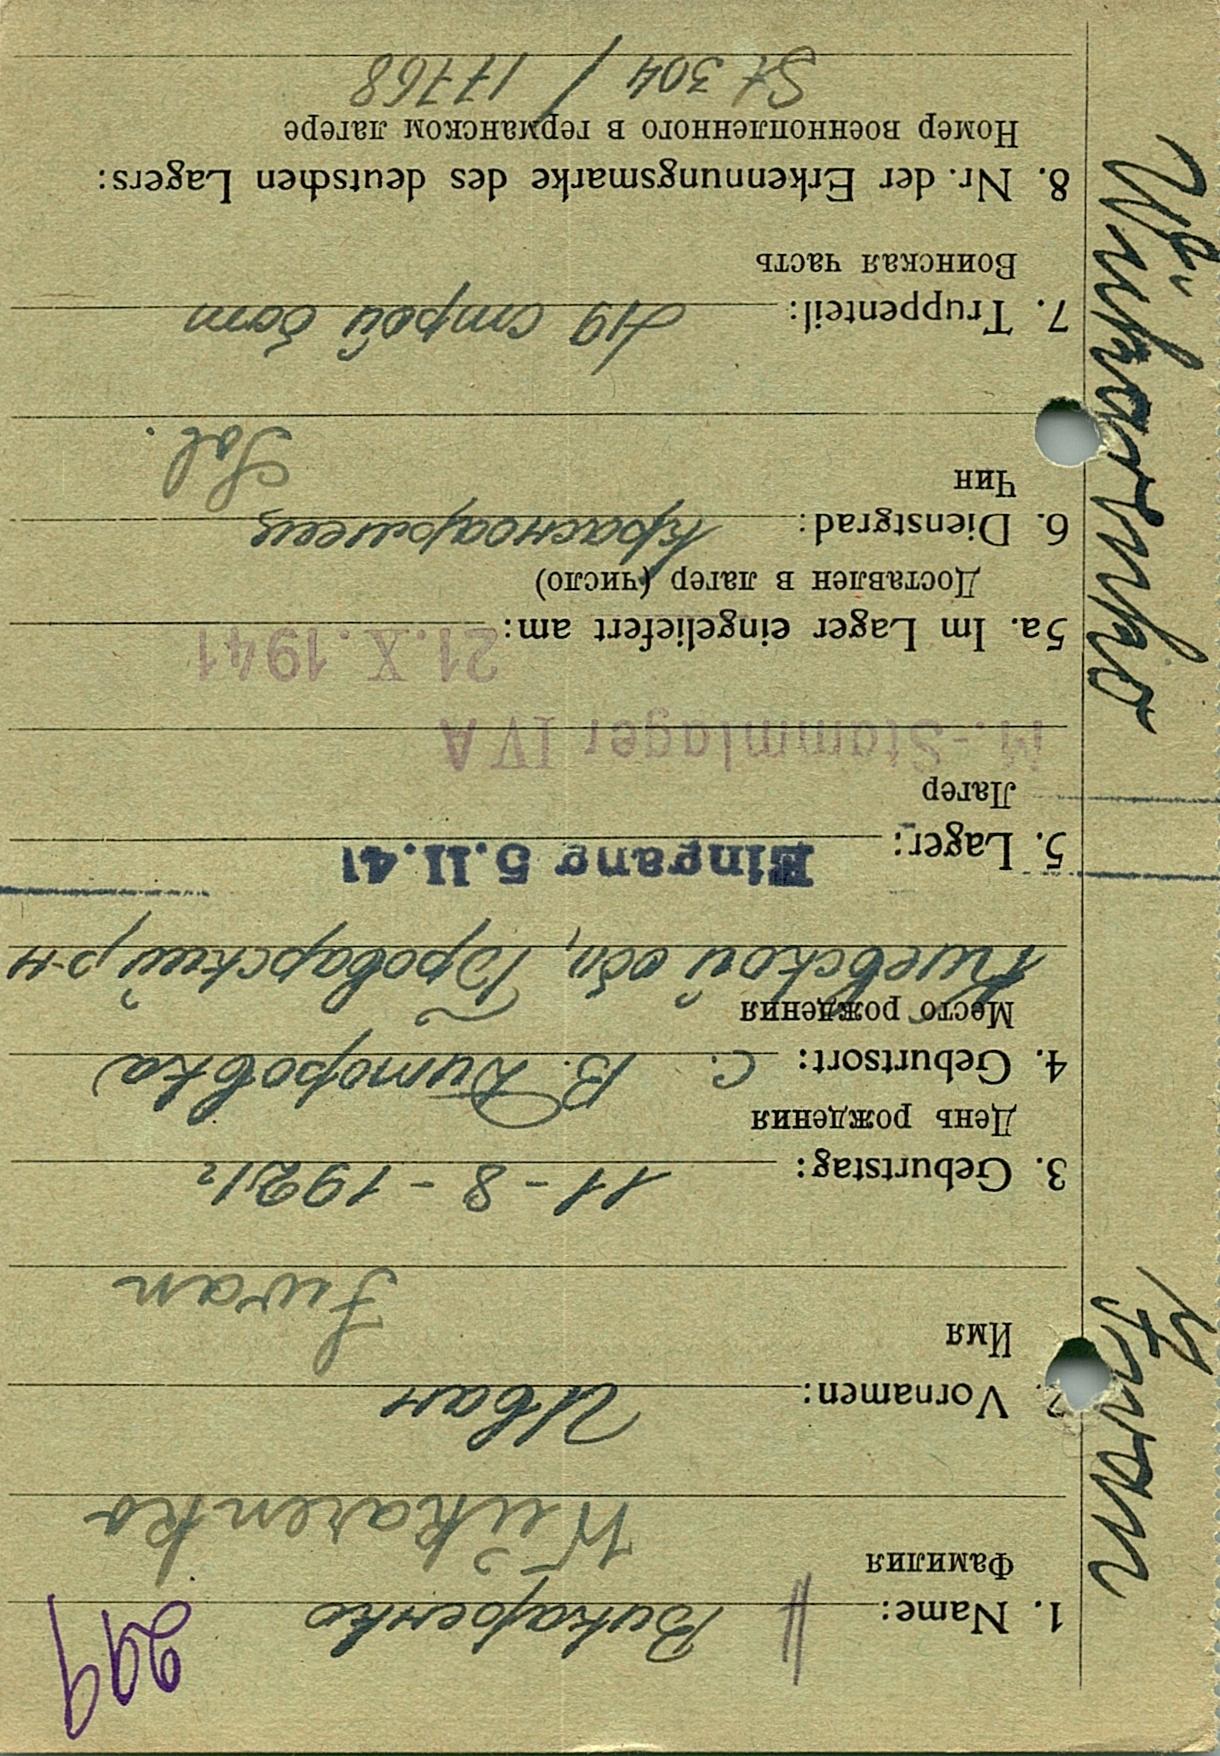 299
1. Name: Викаренко
Фамилия
Wikarenko
2. Vornamen: Иван
Имя
Iwan
3. Geburtstag: 11 - 8 - 1921г
День рождения
4. Geburtsort: с. В. Дитеровка
Место рождения
Киевской обл, Броварский р-н
5. Lager: Eingang 5.11.41
Лагер
M.-Stammlager IV A
5a. Im Lager eingeliefert am: 21. X. 1941
Доставлен в лагер (число)
6. Dienstgrad: Красноармеец
Чин
Sol.
7. Truppenteil: 419 строй бат
Воинская часть
8. Nr. der Erkennungsmarke des deutschen Lagers:
Номер военнопленного в германском лагере
St 304 / 17768
Iwan